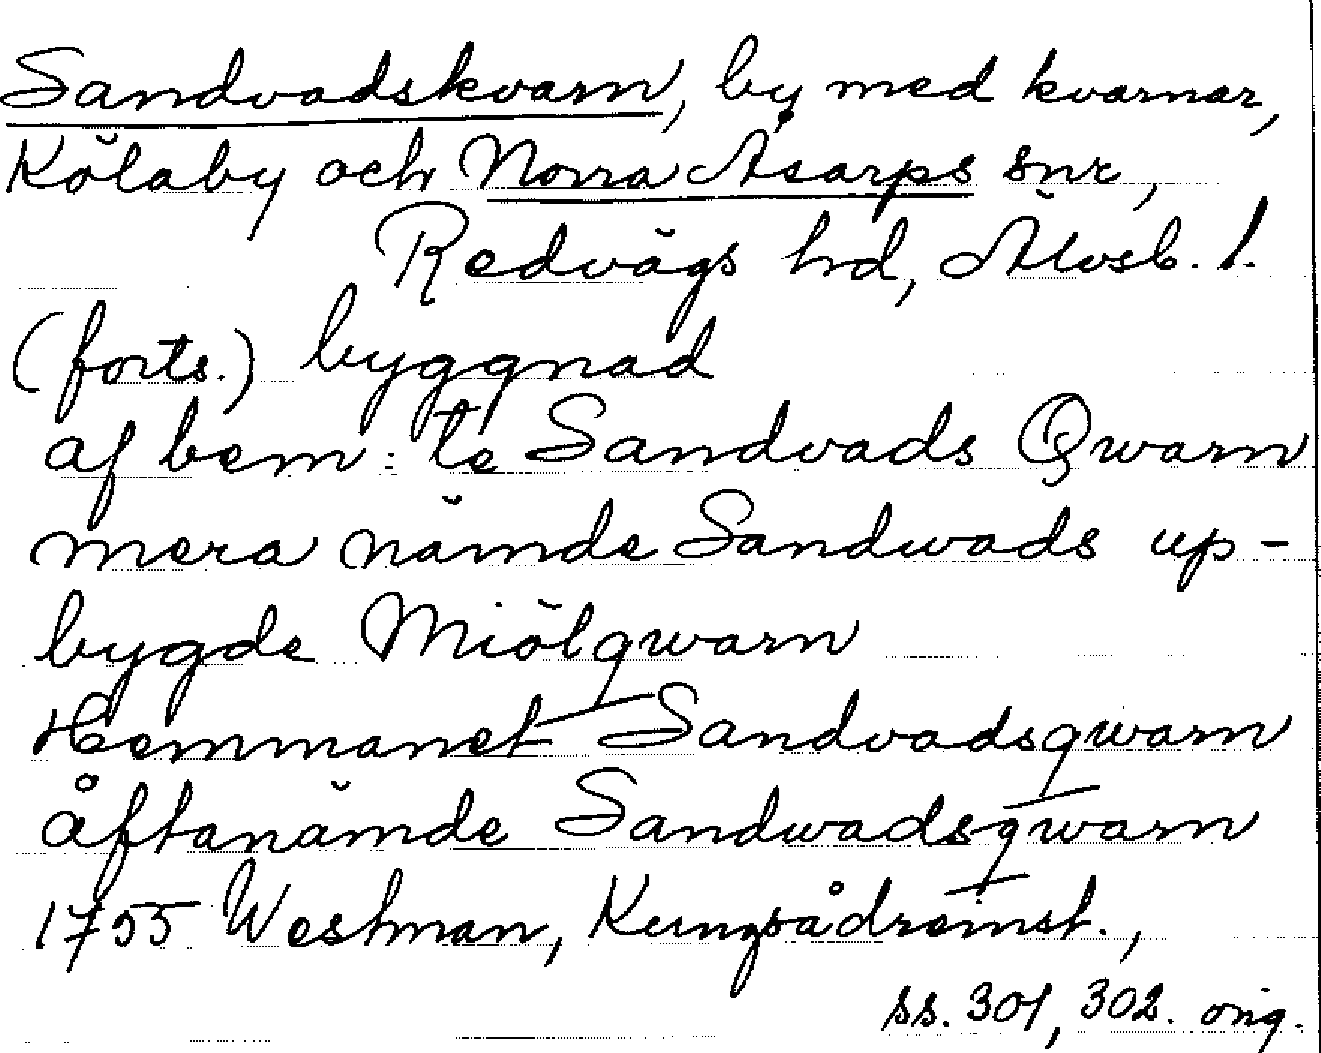 Sandvadskvarn, by med kvarnar,
Kölaby och Norra Åsarps snr,
Redvägs hd, Älvsb. l.
(forts.) byggnad
af bem: te Sandvads Qwarn
mera nämde Sandwads up-
bygde Miölqwarn
Hemmanet Sandvadsqwarn
åftanämde Sandwadsqwarn
1755 Westman, Kungsådremst.,
ss. 301, 302. orig.